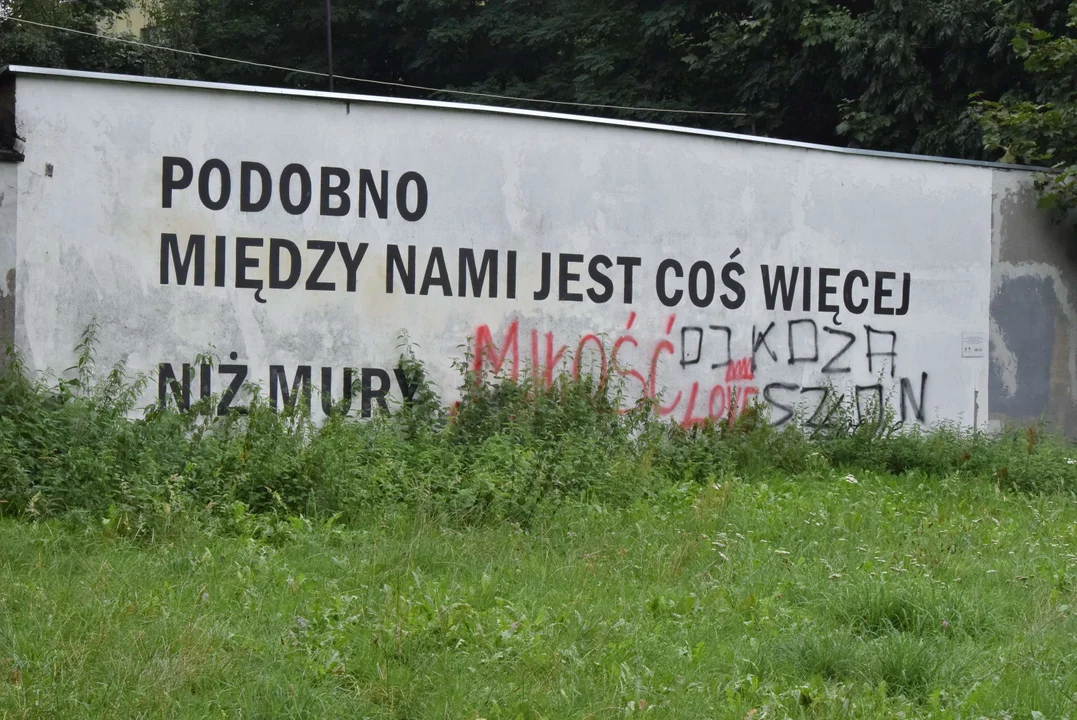 PODOBNO
MIĘDZY NAMI JEST COŚ WIĘCEJ
NIŻ MURY
MIŁOŚĆ
KOZA
LOVE
SZON